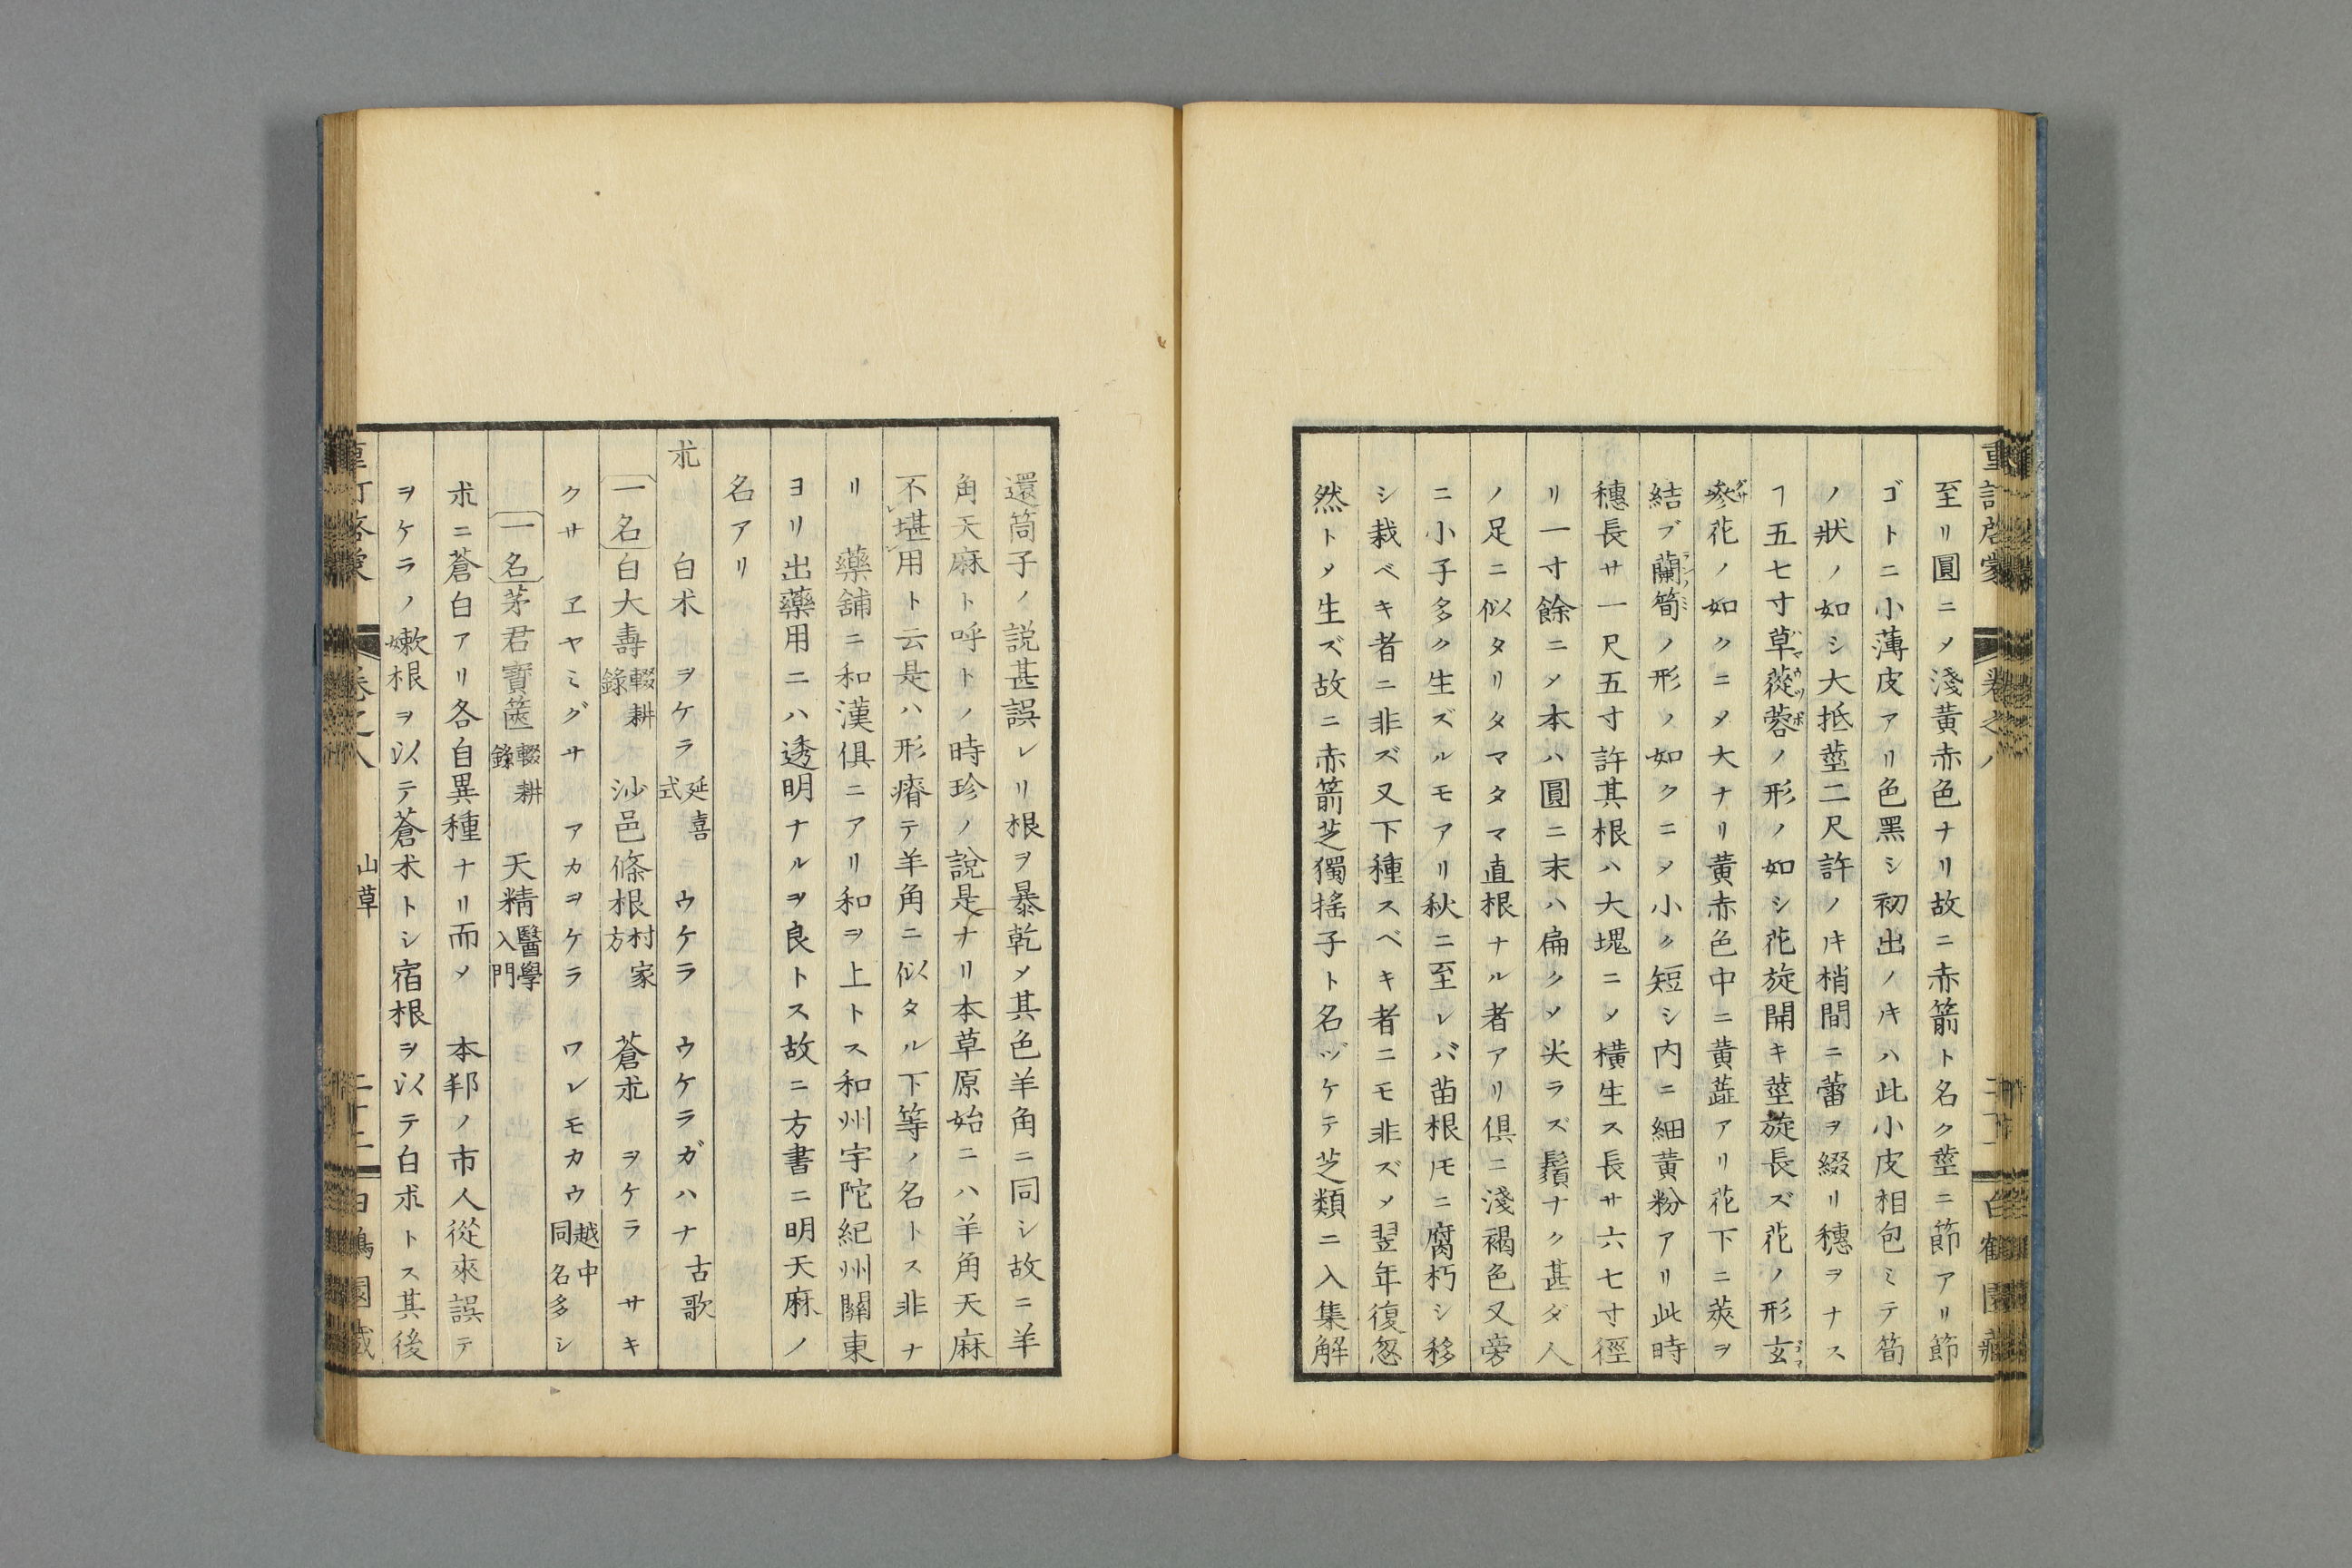 至リ圓ニメ淺黃赤色ナリ故ニ赤箭ト名ク莖ニ節アリ節
ゴトニ小薄皮アリ色黑シ初出ノキハ此小皮相包ミテ筍
ノ狀ノ如シ大抵莖二尺許ノキ梢間ニ蕾ヲ綴リ穗ヲナス
ヿ五七寸草蓯蓉ノ形ノ如シ花旋開キ莖旋長ズ花ノ形玄
參花ノ如クニメ大ナリ黃赤色中ニ黃蕋アリ花下ニ莢ヲ
結ブ蘭筍ノ形ノ如クニメ小ク短シ内ニ細黃粉アリ此時
穗長サ一尺五寸許其根ハ大塊ニメ橫生ス長サ六七寸徑
リ一寸餘ニメ本ハ圓ニ末ハ扁クメ尖ラズ鬚ナク甚ダ人
ノ足ニ似タリタマタマ直根ナル者アリ俱ニ淺褐色又旁
ニ小子多ク生ズルモアリ秋ニ至レバ苗根𪜈ニ腐朽シ移
シ栽ベキ者ニ非ズ又下種スベキ者ニモ非ズメ翌年復忽
然トメ生ズ故ニ赤箭芝獨搖子ト名ヅケテ芝類ニ入集解
還筒子ノ説甚誤レリ根ヲ暴乾メ其色羊角ニ同シ故ニ羊
角天麻ト呼トノ時珍ノ說是ナリ本草原始ニハ羊角天麻
不堪用ト云是ハ形瘠テ羊角ニ似タル下等ノ名トス非ナ
リ　藥舖ニ和漢俱ニアリ和ヲ上トス和州宇陀紀州關東
ヨリ出藥用ニハ透明ナルヲ良トス故ニ方書ニ明天麻ノ
名アリ
朮　白朮　ヲケラ延喜式　ウケラ　ウケラガハナ古歌
一名 白大壽輟耕錄　沙邑條根村家方　蒼朮　ヲケラ　サキ
クサ　ヱヤミグサ　アカヲケラ　ワレモカウ越中同名多シ
一名 茅君寶篋輟耕錄　天精醫學入門
朮ニ蒼白アリ各自異種ナリ而メ　本邦ノ市人從來誤テ
ヲケラノ嫩根ヲ以テ蒼朮トシ宿根ヲ以テ白朮トス其後
山草